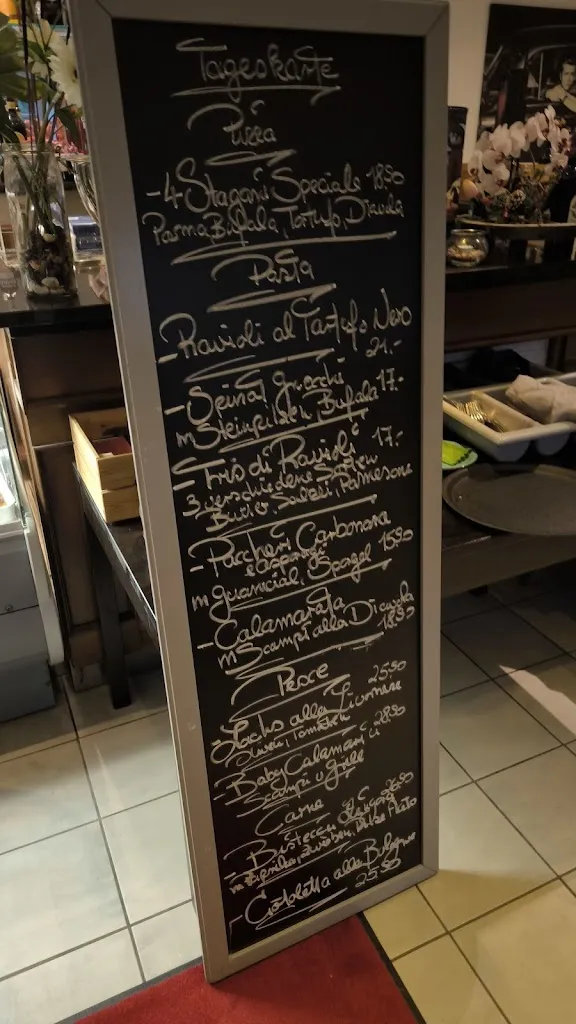 Tageskarte
Pizza
-4 Stagioni Speciale 18.50
Parma, Bufala, Tartufo, Diavola
Pasta
-Ravioli al Tartufo Nero
21.-
-Spinat gnocchi
m Steinpilzen, Bufala 17.-
-Tris di Ravioli 17.-
3 verschiedene Sorten
Butter, Salbei, Parmesane
-Paccheri Carbonara
e asparagi
m guancial, Spargel 15.90
-Calamarata
m Scampi alla Diavola
18.50
Pesce
-Lachs alla Livornese 25.50
Oliven, Tomaten
-Baby Calamari u 28.50
Scampi v Grill
Carne
-Bistecca
m Paprika, Zwiebeln,
-Cotoletta alla Bolognese
25.50